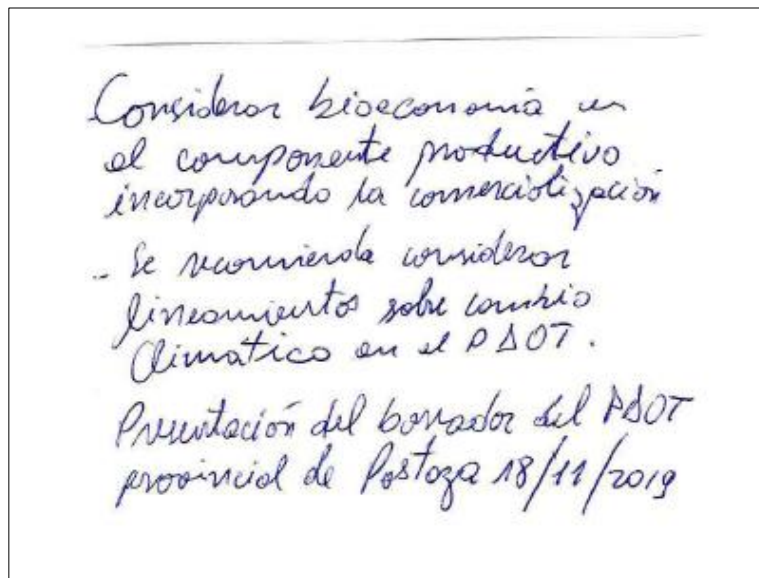 Considerar bioeconomía en
el componente productivo
incorporando la comercialización
- Se recomienda considerar
lineamientos sobre cambio
Climático en el PDOT.
Presentación del borrador del PDOT
provincial de Pastaza 18/11/2019